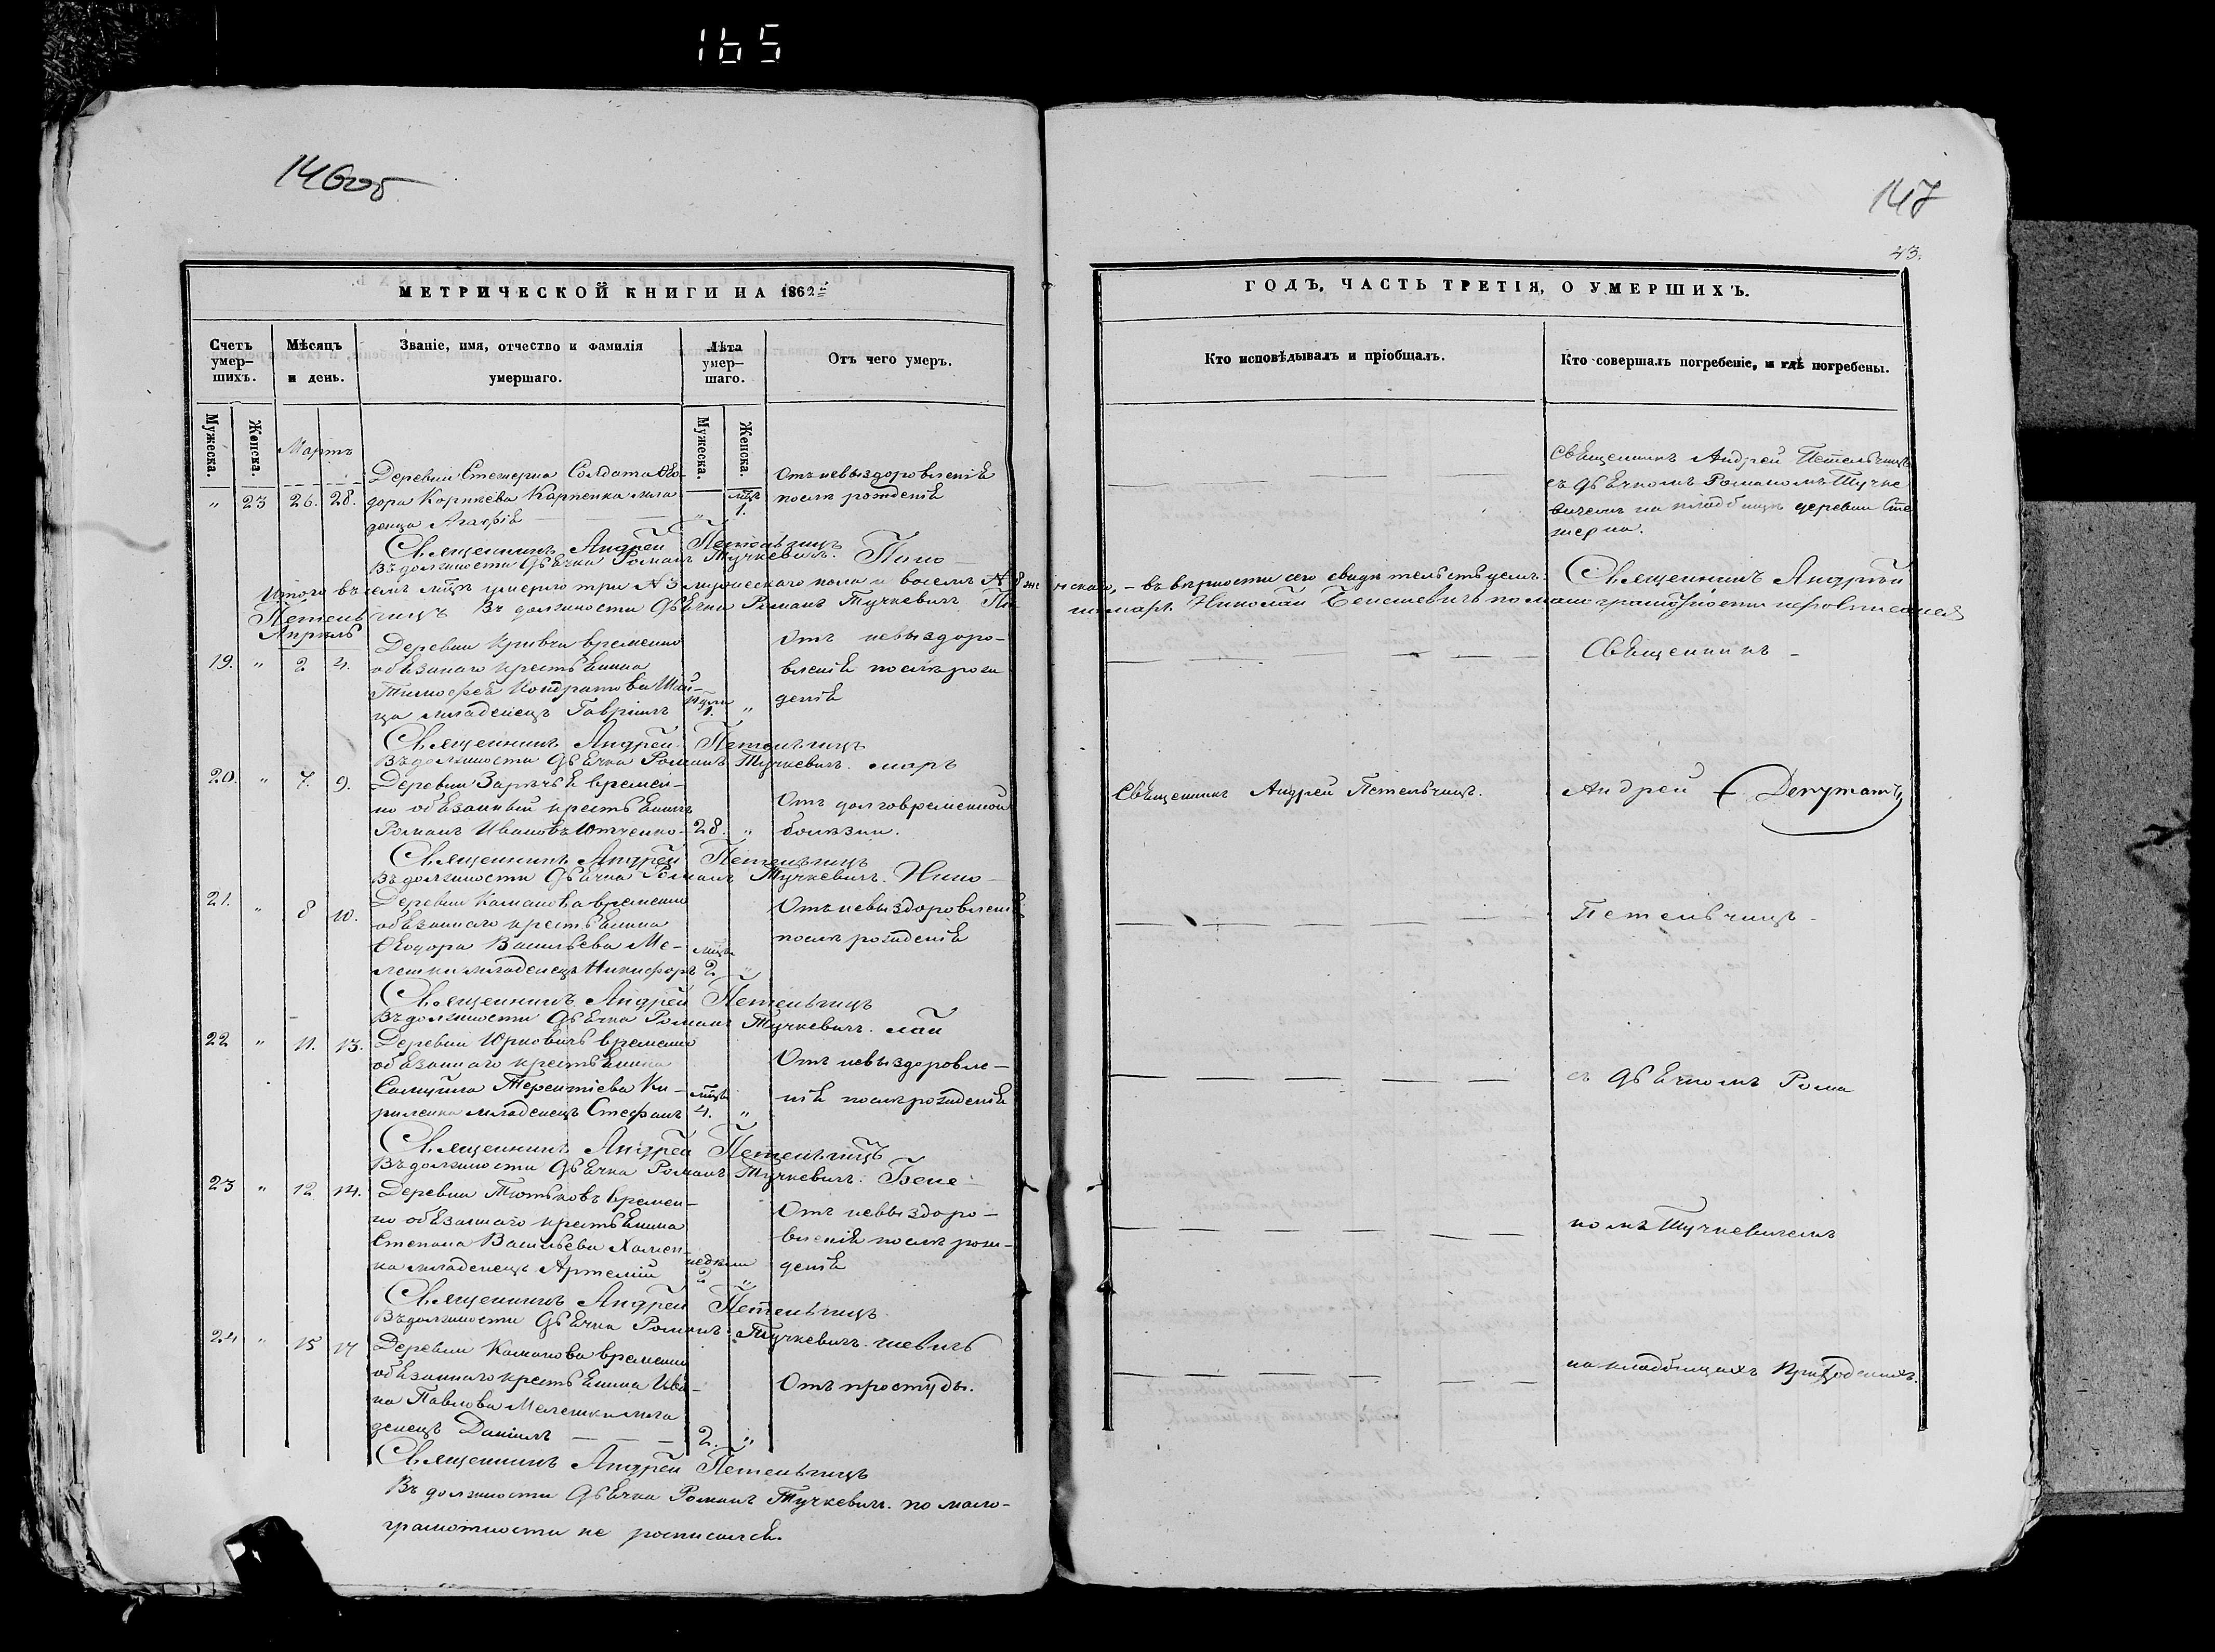 165
146об
147
43.
МЕТРИЧЕСКОЙ КНИГИ НА 1862
ГОДЪ, ЧАСТЬ ТРЕТІЯ, О УМЕРШИХЪ.
Счетъ умер-шихъ.
Мѣсяцъ и день.
Званіе, имя, отчество и фамилія умершаго.
Лѣта умер-шаго.
Отъ чего умеръ.
Кто исповѣдывалъ и пріобщалъ.
Кто совершалъ погребеніе, и гдѣ погребены.
Мужеска. Женска.
Мужеска. Женска.
Мартъ
„ 23 26. 28.
Деревни Солдата Ѳео-
дора Карпенка мла
денца Агафія
1.
Отъ невыздоровленія
послѣ рожденія
Священникъ Андрей Петельчицъ
съ дьячкомъ Романомъ Тучке
вичемъ на кладбищѣ деревни Сте
жерна.
Священникъ Андрей Петельчицъ
Въ должности Дьячка Романъ Тучкевичъ. Поно-
Итого въ семъ м҃цѣ умерло три № 3 мужескаго пола и восемъ № 8 женскаго, – въ вѣрности сего свидѣтельствуемъ: Священникъ Андрей
Петельчицъ Въ должности Дьячка Романъ Тучкевичъ По номарь Николай Бенешевичъ по малограмотности нерописался
Апрѣль
19. „ 2 4.
Деревни Кривчи временно
обязаннаго крестьянина
Тимоѳея Кондратова
ца младенецъ Гавріилъ
1. „
Отъ невыздоро-
вленія послѣ рож
денія
Священникъ –
Священникъ Андрей Петельчицъ
Въ должности Дьячка Романъ Тучкевичъ. марь
20. „ 7. 9.
Деревни Зарѣчья времен-
но обязанный крестьянинъ
Романъ Ивановъ Ютченко
28. „
Отъ долговременной
болѣзни.
Священникъ Андрей Петельчицъ.
Андрей Депутатъ
Священникъ Андрей Петельчицъ
Въ должности Дьячка Романъ Тучкевичъ. Нико-
21. „ 8 10.
Деревни Каманова временно
обязаннаго крестьянина
Ѳеодора Васильева Ме-
лешки младенецъ Никифоръ
м҃цъ 2 „
Отъ невыздоровленія
послѣ рожденія
Петельчицъ
Священникъ Андрей Петельчицъ
Въ должности Дьячка Романъ Тучкевичъ. лай
22 „ 11. 13.
Деревни Юрковичъ временно
обязаннаго крестьянина
Самуила Терентіева Ки-
риленка младенецъ Стефанъ
м҃ца 4. „
Отъ невыздоровле-
нія послѣ рожденія
съ Дьячкомъ Рома
Священникъ Андрей Петельчицъ
Въ должности Дьячка Романъ Тучкевичъ. Бене-
23 „ 12 14.
Деревни Тютьковъ времен-
но обязаннаго крестьянина
Степана Васильева Хомен-
ка младенецъ Артемій
недѣли 2 „
Отъ невыздоро-
вленія послѣ рож-
денія
номъ Тучкевичемъ
Священникъ Андрей Петельчицъ.
Въ должности Дьячка Романъ Тучкевичъ. шевичъ
24 „ 15 17
Деревни Каманова временно
обязаннаго крестьянина Ива-
на Павлова Мелешки мла
денецъ Даніилъ
2. „
Отъ простуды.
на кладбищахъ Приходскихъ.
Священникъ Андрей Петельчицъ
Въ должности Дьячка Романъ Тучкевичъ. по мало-
грамотности не росписался.